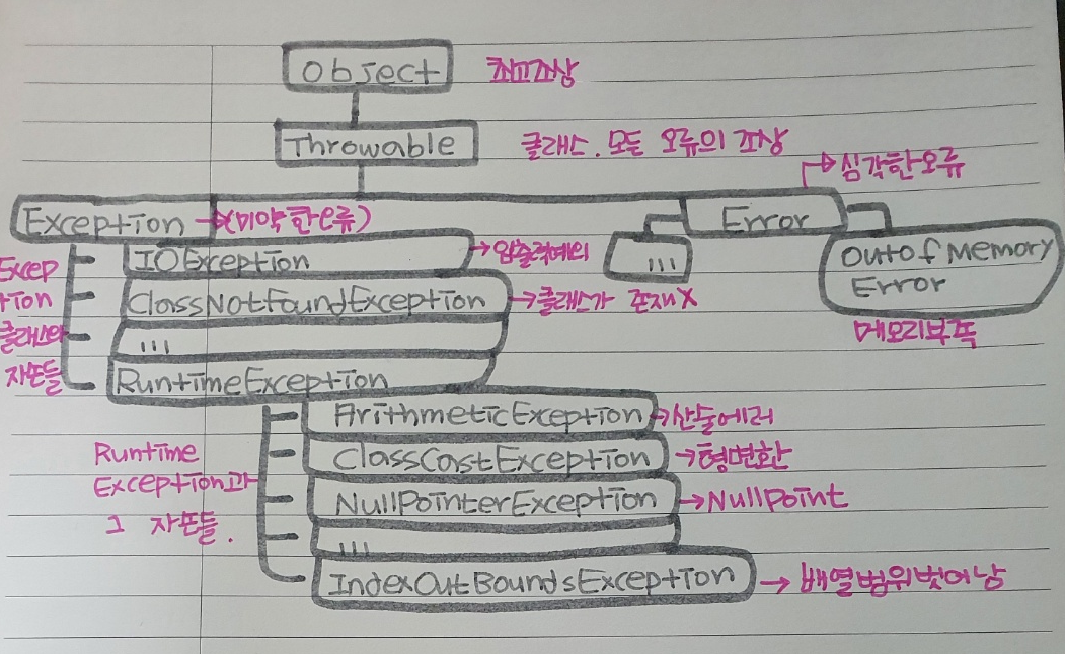 Object 최고조상
Throwable 클래스. 모든 오류의 조상
→심각한오류
Exception →(미약한오류) Error
IOException →입출력예외 ... OutofMemory
Error
Excep
tion
클래스와
자손들
ClassNotFoundException →클래스가 존재X
메모리부족
...
RuntimeException
ArithmeticException →산술에러
Runtime
Exception과
그 자손들.
ClassCastException →형변환
NullPointerException →NullPoint
...
IndexOutBoundsException →배열범위벗어남